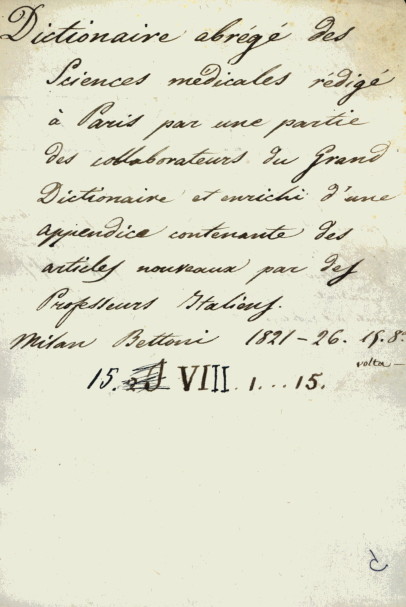 Dictionaire abrégé des
Sciences medicales rédigé
à Paris par une partie
des collaborateurs du Grand
Dictionaire et enrichi d'une
appendice contenante des
articles nouveaux par des
Professeurs Italiens.
Milan Bettoni 1821-26. 15. 8.°
volta -
15. VIII. 1...15.